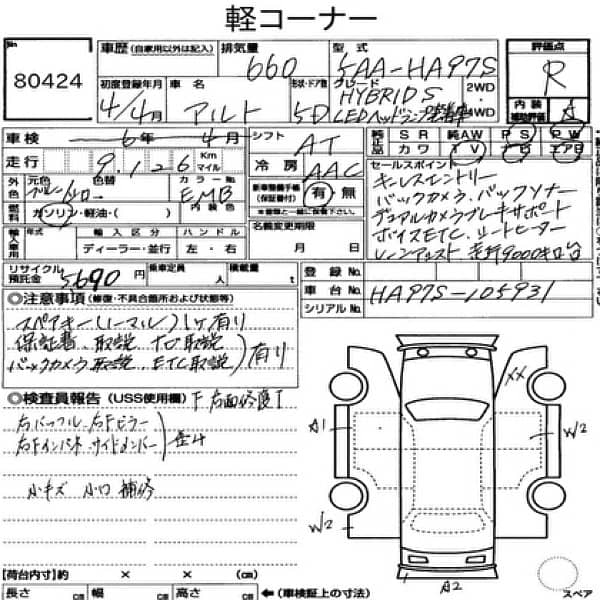 軽コーナー
No.
80424
車歴 (自家用以外は記入)
排気量
660
型式
5AA-HA97S
評価点
R
初度登録年月
4/4月
車名
アルト
形状・ドア数
5D
グレード
HYBRID S
LEDヘッドランプ装着車
2WD
4WD
内装
補助評価
車検
6年 4月
シフト
AT
純正品 SR 純AW PS PW
カワ TV ナビ エアB
走行
9,126
Km
マイル
冷房
AAC
外色
元色
色替
カラーNo.
EMB
燃料
ガソリン・軽油・( )
内装色
新車整備手帳
(保証書付)
有・無
※書類に限る
セールスポイント
キーレスエントリー
バックカメラ、バックソナー
デュアルカメラブレーキサポート
ボイスETC、シートヒーター
レーンアシスト 走行9000キロ台
輸入車用
年式
輸入区分
ハンドル
ディーラー・並行
左・右
名義変更期限
月 日
リサイクル預託金
5690円
乗車定員
人
積載量
t
登録No.
車台No.
HA97S-105931
シリアルNo.
◎注意事項 (修復・不具合箇所および状態等)
スペアキー(ノーマル)1ヶ有り
保証書、取説
バックカメラ取説、ETC取説
有り
◎検査員報告 (USS使用欄)
右面修復
右バッフル、右Fピラー
右Fインパネ サイドメンバー
小キズ 小凹 補修
XX
A1
W2
W2
A2
【荷台内寸】約 × × (cm)
長さ cm 幅 cm 高さ cm
←(車検証上の寸法)
スペア